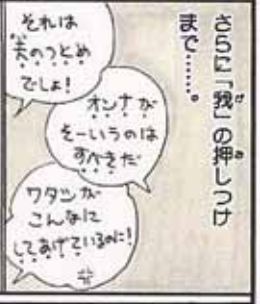 さらに「我」の押しつけ
まで……。
それは
夫のつとめ
でしょ!
オンナが
そーいうのは
すべきだ
ワタシが
こんなに
してあげているのに!